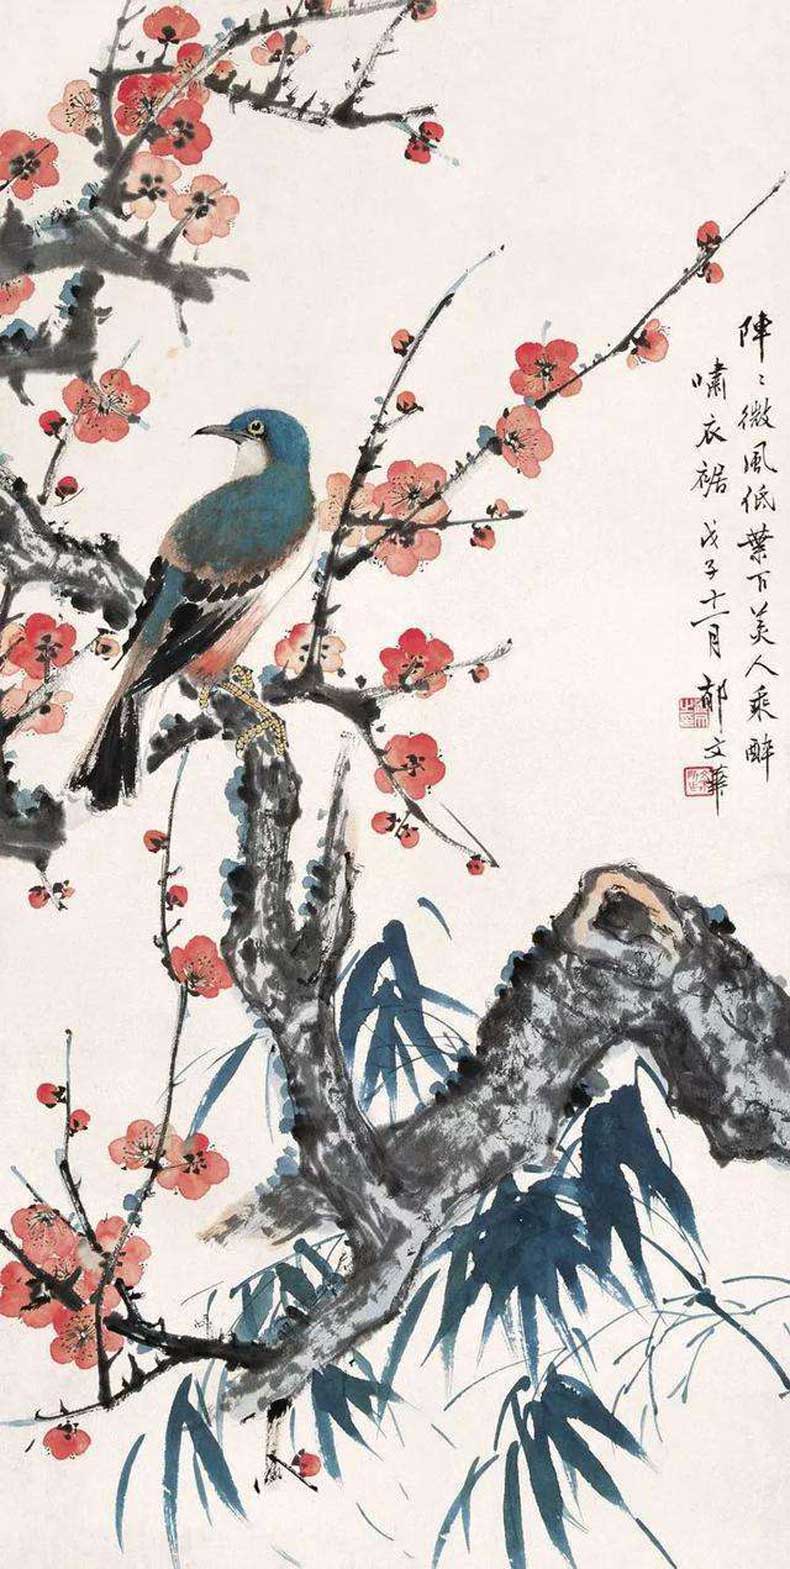 陣〻微風低葉下美人乘醉
嘯衣裾 戊子十二月 郁文華